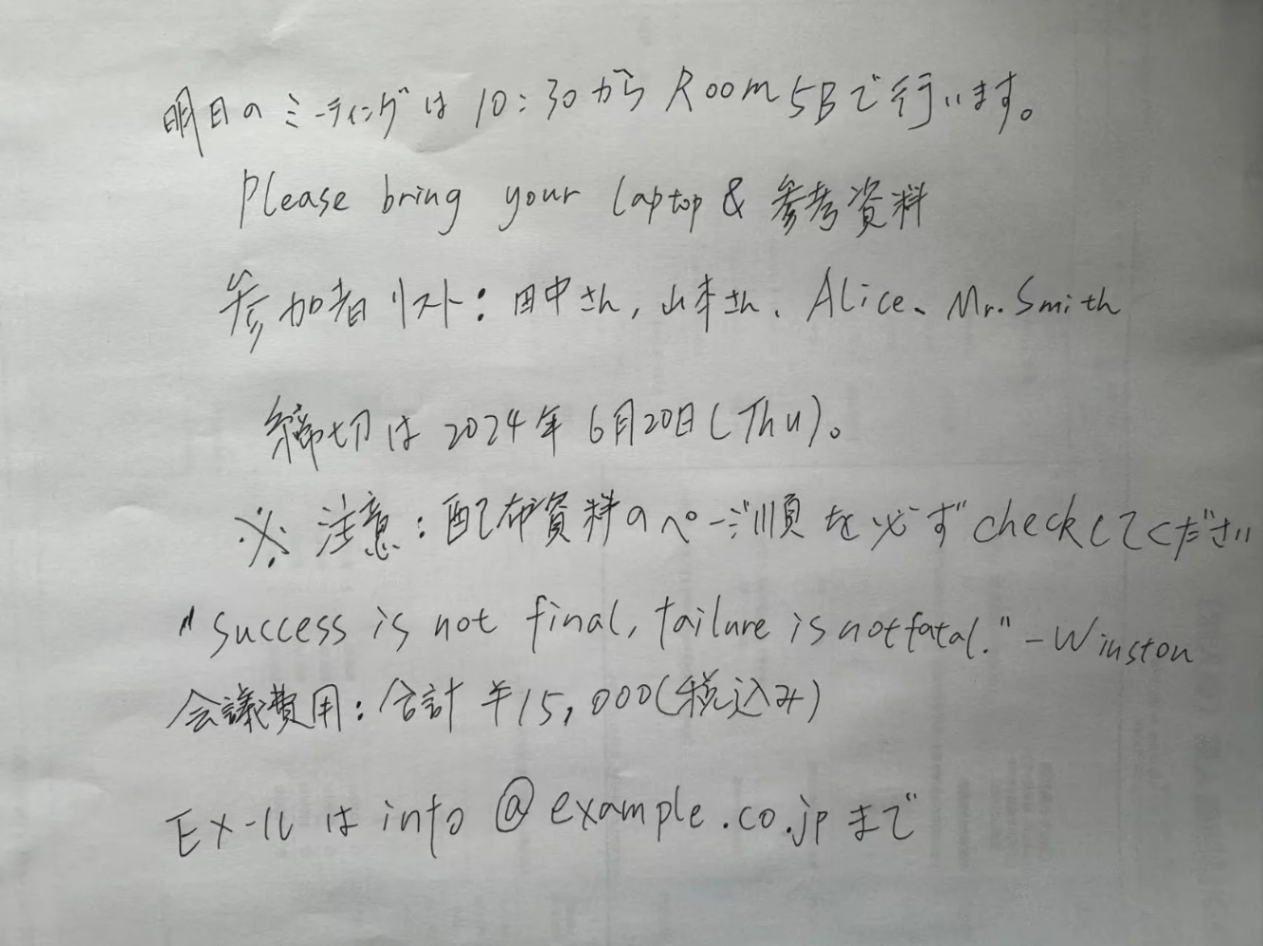 明日のミーティングは10:30からRoom 5Bで行います。
Please bring your laptop & 参考資料
参加者リスト:田中さん,山本さん、Alice、Mr.Smith
締切は2024年6月20日(Thu)。
※注意:配布資料のページ順を必ずcheckしてください
"Success is not final, failure is not fatal." -Winston
会議費用:合計¥15,000(税込み)
Eメールはinfo@example.co.jpまで